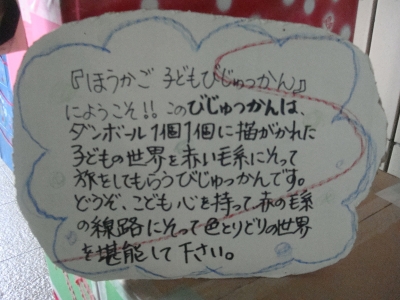 『ほうかご 子どもびじゅつかん』
にようこそ!! このびじゅつかんは、
ダンボール1個1個に描がかれた
子どもの世界を赤い毛糸にそって
旅をしてもらうびじゅつかんです。
どうぞ、こども心を持って赤の毛糸
の線路にそって色とりどりの世界
を堪能して下さい。